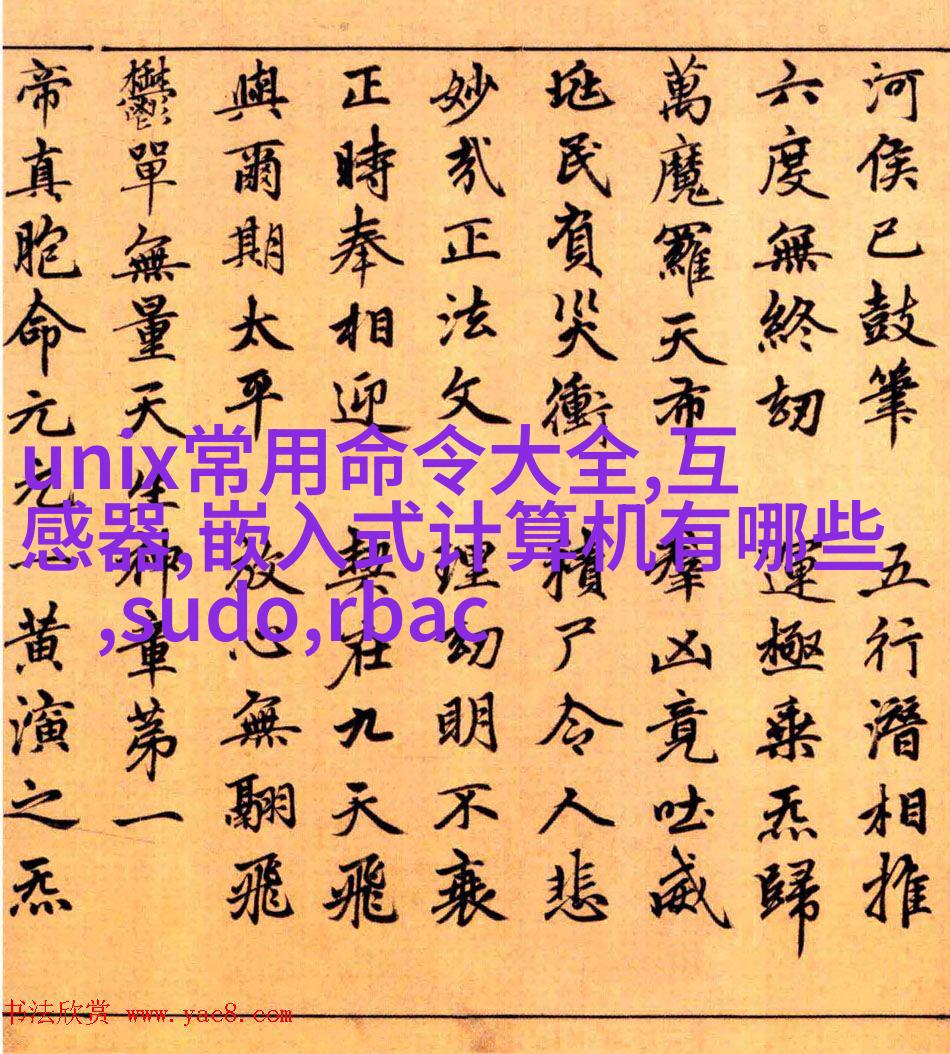 河侯已鼓筆 五行潛相推
六度無終劫 運極乘炁歸
萬魔羅天布 羣凶竟吐威
民負災衝 積尸令人悲
妙哉正法文 理明不衰
正時奉相迎 契在九天飛
與爾期太平 放心無翮飛
鬱單無量天生神章第一
帝真胞命元元一黃演之炁
unix常用命令大全,互
感器,嵌入式计算机有哪些
,sudo,rbac
书法欣赏 www.yac8.com